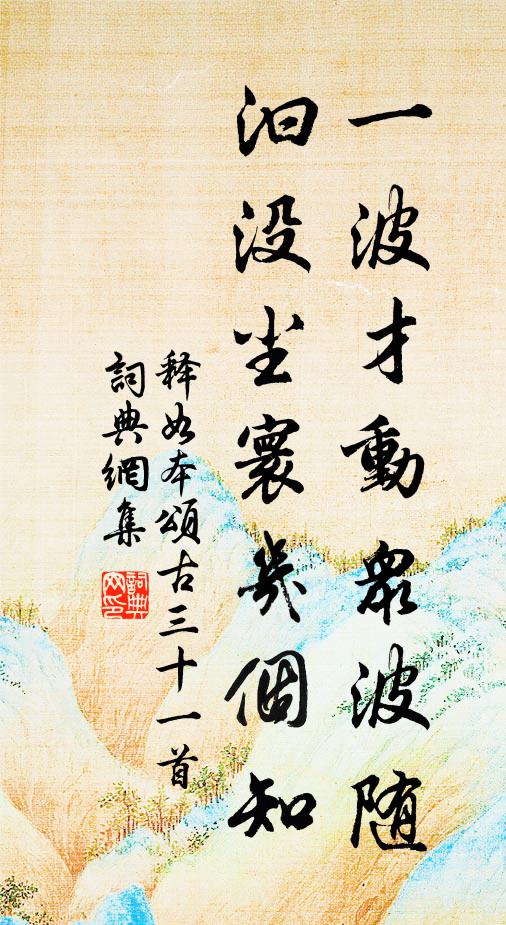 一波才動衆波随
汩没尘寰幾個知
释如本頌古三十一首
詞典網集
詞典
网印